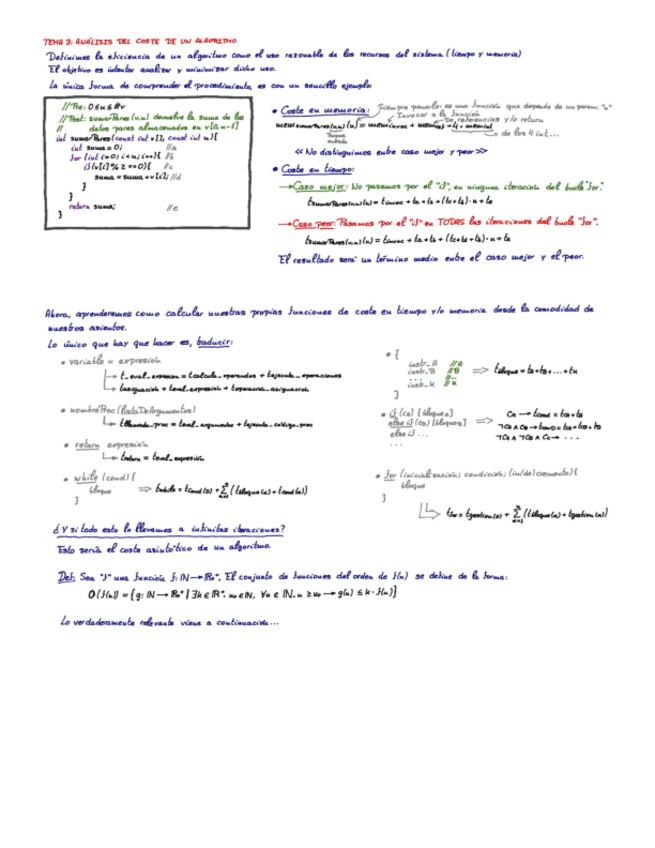 TEMA 3: ANÁLISIS DEL COSTE DE UN ALGORITMO
Definimos la eficiencia de un algoritmo como el uso razonable de los recursos del sistema (tiempo y memoria)
El objetivo es intentar analizar y minimizar dicho uso.
La única forma de comprender el procedimiento es con un sencillo ejemplo
//Pre: 0≤n≤#v
//Post: sumarPares(v,n) devuelve la suma de los
// datos pares almacenados en v[0,n-1]
int sumarPares(const int v[], const int n){
int suma = 0; //a
for (int i=0; i<n; i++){ //b
if(v[i]%2==0){ //c
suma = suma+v[i]; //d
}
}
return suma; //e
}
• Coste en memoria: Siempre ponerlo: es una función que depende de un parám. "n"
Invocar a la función
De referencias y/o return
mem sumarPares(v,n)(n) = mem invoc + + 4 · mem int
de los 4 int...
<<No distinguimos entre caso mejor y peor>>
• Coste en tiempo:
→Caso mejor: No pasamos por el "if", en ninguna iteración del bucle "for".
t sumarPares(v,n)(n) = t invoc + ta + tb + (tc+tb)·n + te
→Caso peor: Pasamos por el "if" en TODAS las iteraciones del bucle "for".
t sumarPares(v,n)(n) = t invoc + ta + tb + (tc+td+tb)·n + te
El resultado será un término medio entre el caso mejor y el peor.
Ahora, aprenderemos como calcular nuestras propias funciones de coste en tiempo y/o memoria desde la comodidad de
nuestros asientos.
Lo único que hay que hacer es, traducir:
• variable = expresión
t_eval_expresion = tcalculo_operandos + tejecuta_operaciones
tasignación = teval_expresión + toperación_asignación
• nombreProc(listaDeArgumentos)
tllamada_proc = teval_argumentos + tejecuta_código_proc
• return expresión
treturn = teval_expresión
• while (cond){
bloque ⇒ twhile = tcond(0) + Σ (tbloque(α) + tcond(α))
}
• {
instr_A //A
instr_B //B ⇒ tbloque = ta+tb+...+tk
... //...
instr_K //K
}
• if (Ca) [bloque A]
else if (Cb) [bloque B] ⇒
else if ...
...
• for (inicialización; condición; (in/de)cremento){
bloque
}
tfor = tgestion(0) + Σ ((tbloque(α) + tgestion(α))
¿Y si todo esto lo llevamos a infinitas iteraciones?
Esto sería el coste asintótico de un algoritmo
Def: Sea "f" una función f: ℕ→ℝ₀⁺. El conjunto de funciones del orden de f(n) se define de la forma:
O(f(n)) = {g: ℕ→ℝ₀⁺ | ∃k∈ℝ⁺, n₀∈ℕ, ∀n∈ℕ, n≥n₀→g(n)≤k·f(n)}
Lo verdaderamente relevante viene a continuación...